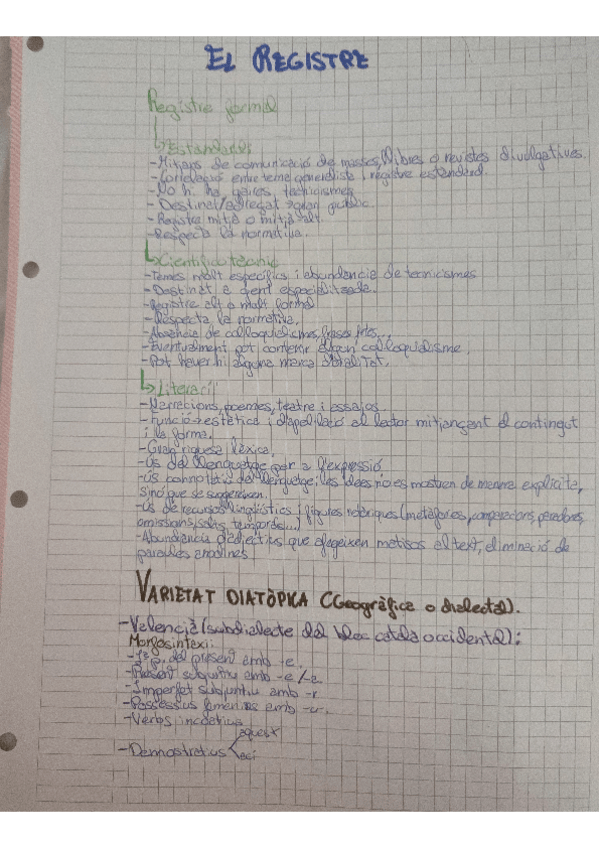 EL REGISTRE
Registre formal
Estàndard:
-Mitjans de comunicació de masses, llibres o revistes divulgatives.
-Correlació entre tema generalista i registre estàndard.
-No hi ha gaires tecnicismes
-Destinat/adreçat gran públic.
-Registre mitjà o mitjà-alt.
-Respecta la normativa.
Científico tècnic
-Temes molt específics i abundància de tecnicismes
-Destinat a gent especialitzada.
-Registre alt o molt formal
-Respecta la normativa.
-Absència de col·loquialismes, frases fetes...
-Eventualment pot contenir algun col·loquialisme.
-Pot haver-hi alguna marca d'oralitat.
Literari:
-Narracions, poemes, teatre i assajos.
-Funció estètica i d'apel·lació al lector mitjançant el contingut
i la forma.
-Gran riquesa lèxica.
-Ús del llenguatge per a l'expressió
-Ús connotatiu del llenguatge: les idees no es mostren de manera explícita,
sino que se suggereixen.
-Ús de recursos lingüístics i figures retòriques (metàfores, comparacions, paradoxes,
omissions, salts temporals...)
-Abundància d'adjectius que afegeixen matisos al text, eliminació de
paraules
VARIETAT DIATÒPICA (Geogràfica o dialectal).
-Valencià (subdialecte del bloc català occidental):
Morfosintaxi:
-1ª p. del present amb -e.
-Present subjuntiu amb -e/-a
-Imperfet subjuntiu amb -r
-Possessius femenins amb -u-.
-Verbs incoatius
-Demostratius
aquest
ací